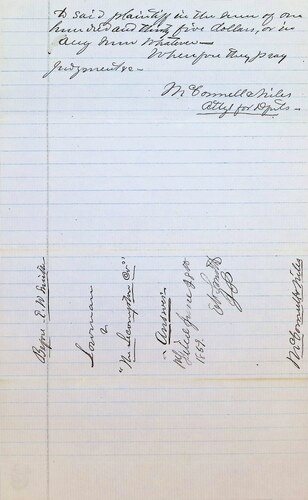 to said plaintiff in the sum of one
hundred and thirty five dollars, or in
any sum whatever—
Wherefore they pray
judgment &c—
McConnell & Niles
Attys for Dfts—
Before E. W. Smith
Lowman
vs
"The Lexington Co."
Answer
Filed June
1859.
E W Smith
J P
McConnell & Niles